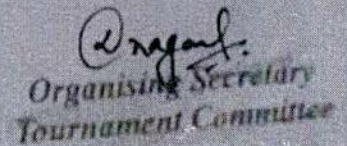 Organising Secretary
Tournament Committee